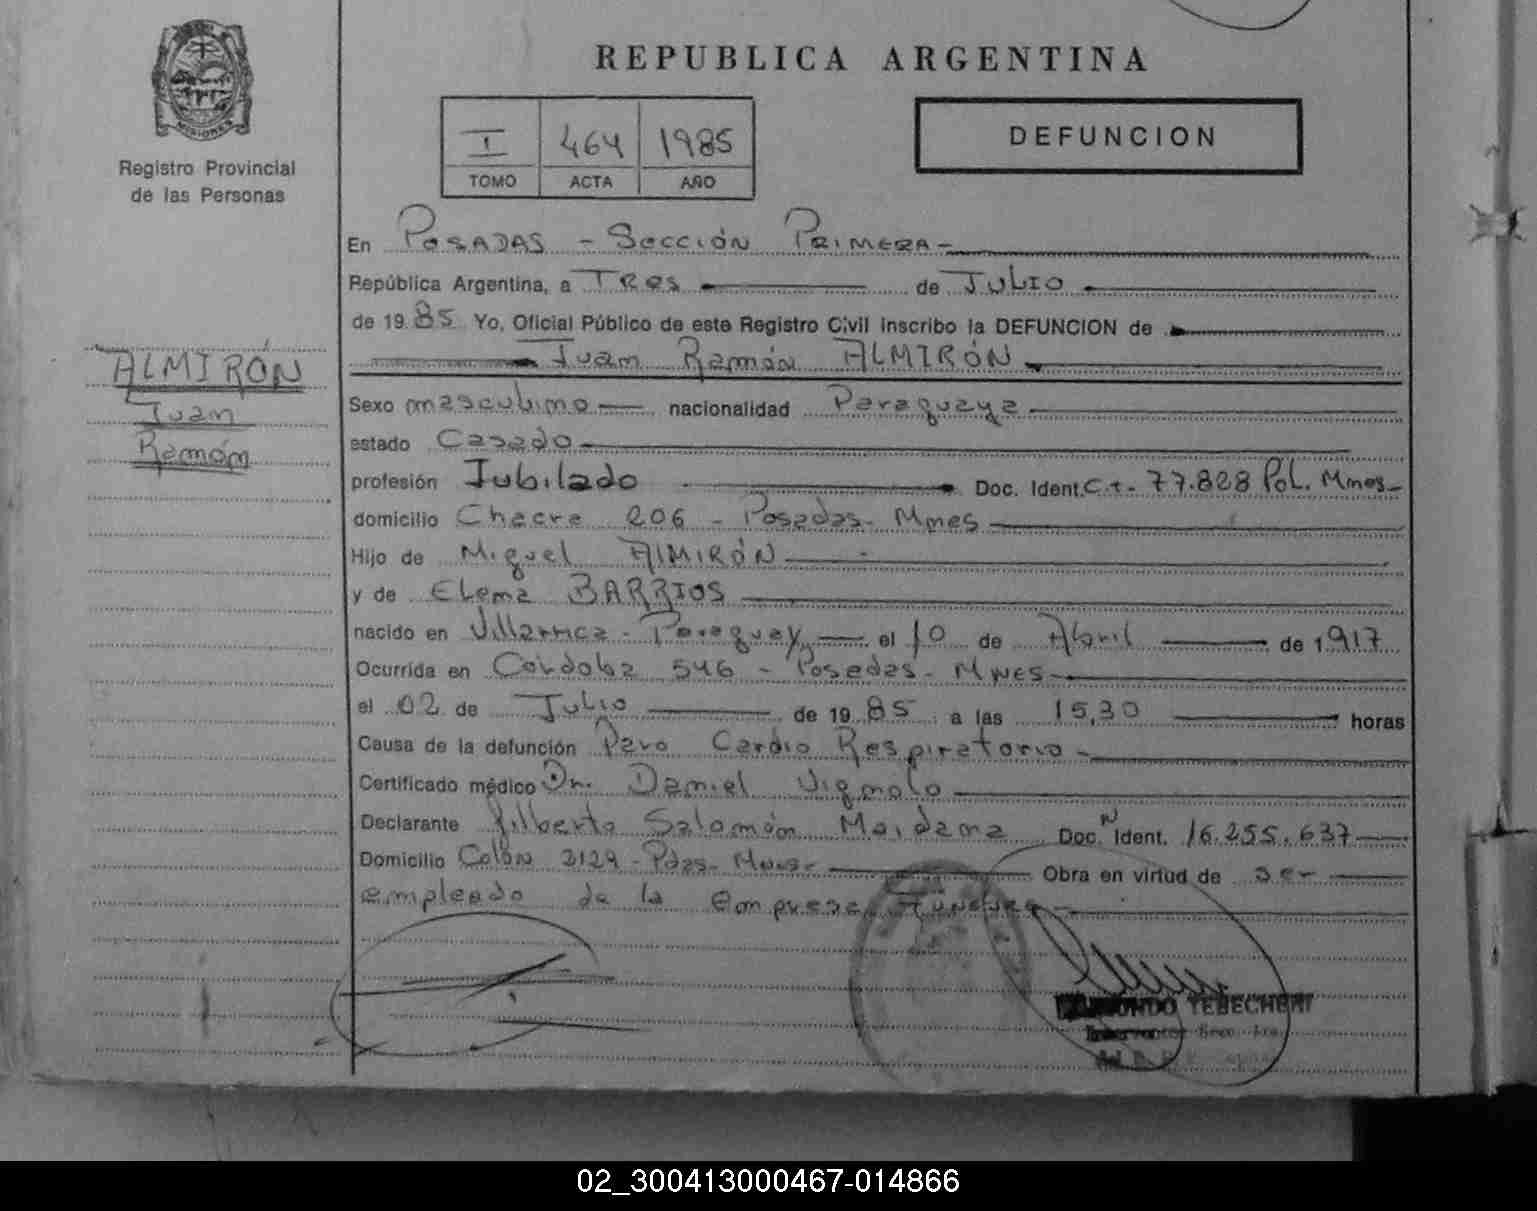 REPUBLICA ARGENTINA
MISIONES
Registro Provincial
de las Personas
I 464 1985
TOMO ACTA AÑO
DEFUNCION
ALMIRÓN
Juan
Ramón
En POSADAS - Sección PRIMERA -
República Argentina, a TRES de JULIO
de 19 85 Yo, Oficial Público de este Registro Civil inscribo la DEFUNCION de
Juan Ramón ALMIRÓN
Sexo masculino nacionalidad Paraguaya
estado Casado
profesión Jubilado Doc. Ident. C.I. 77.828 Pol. Mnes-
domicilio Chacra 206 - Posadas- Mnes
Hijo de Miguel AlMIRÓN
y de Elena BARRIOS
nacido en Villarrica - Paraguay el 10 de Abril de 1.917
Ocurrida en Córdoba 546 - Posadas - Mnes-
el 02 de Julio de 19 85 a las 15,30 horas
Causa de la defunción Paro Cardio Respiratorio -
Certificado médico Dr. Daniel Vignolo
Declarante Gilberto Salomón Maidana Doc. N Ident. 16.255.637
Domicilio Colón 2129 - Pdas- Mnes- Obra en virtud de ser
empleado de la Empresa Fúnebre -
YEBECHERI
02_300413000467-014866